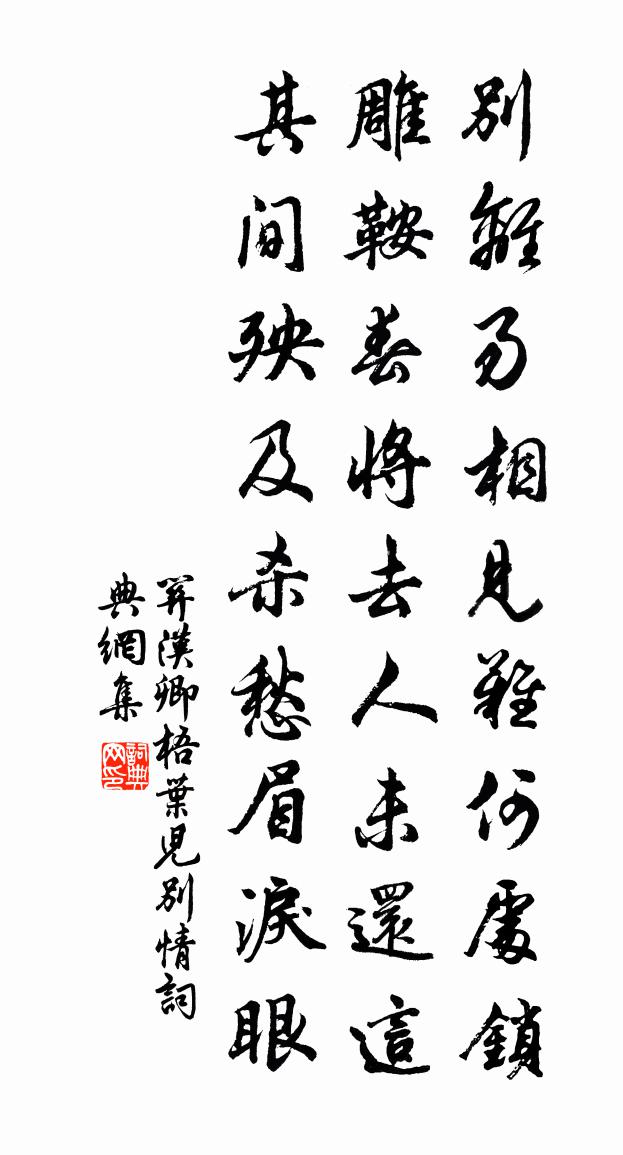 別離易相見難何處鎖
雕鞍春將去人未還這
其間殃及杀愁眉淚眼
关漢卿梧葉児別情詞
典網集
詞典
网印